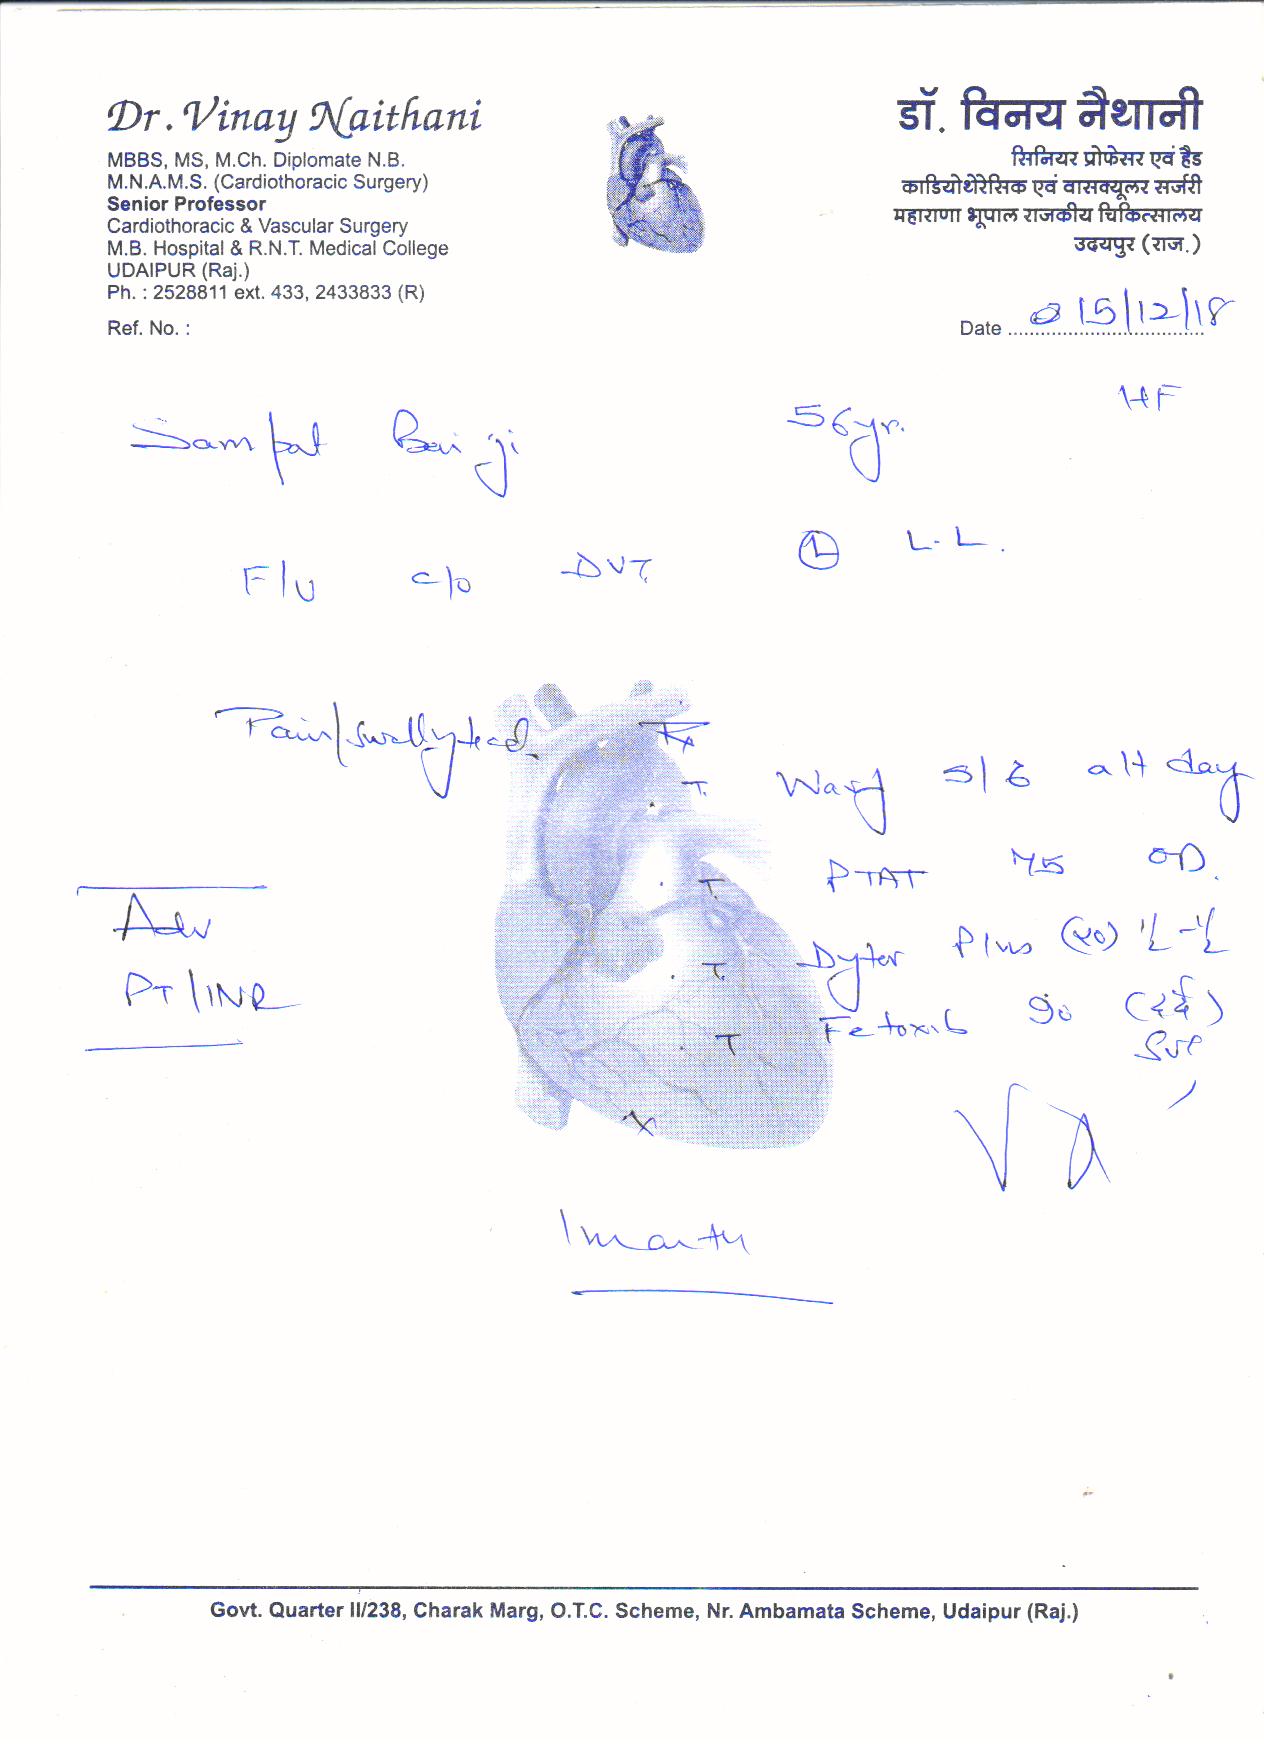 Dr. Vinay Naithani
MBBS, MS, M.Ch. Diplomate N.B.
M.N.A.M.S. (Cardiothoracic Surgery)
Senior Professor
Cardiothoracic & Vascular Surgery
M.B. Hospital & R.N.T. Medical College
UDAIPUR (Raj.)
Ph. : 2528811 ext. 433, 2433833 (R)
Ref. No. :
डॉ. विनय नैथानी
सिनियर प्रोफेसर एवं हैड
कार्डियोथेरेसिक एवं वासक्यूलर सर्जरी
महाराणा भूपाल राजकीय चिकित्सालय
उदयपुर (राज.)
Date 15/12/18
Sampat Bai ji 56yr. HF
F/U c/o DVT L L.L.
Pain/swelling Rx
T. Warf 5/6 alt day
T. PTAT 75 OD.
T. Dytor Plus (२०) ½-½
T Fetoxib 90 (दर्द)
Adv
PT/INR
1 month
Govt. Quarter II/238, Charak Marg, O.T.C. Scheme, Nr. Ambamata Scheme, Udaipur (Raj.)